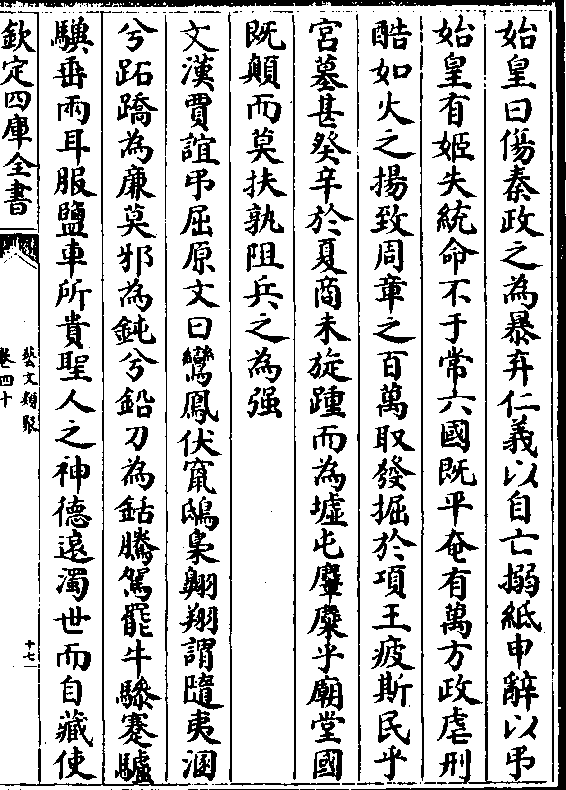 始皇曰傷秦政之為暴弃仁義以自亡搦紙申辭以弔
始皇有姬失統命不于常六國既平奄有萬方政虐刑
酷如火之揚致周章之百萬取發掘於項王疲斯民乎
宮墓甚癸辛於夏商未旋踵而為墟屯麞麋乎廟堂國
既顛而莫扶孰阻兵之為强
文漢賈誼弔屈原文曰鸞鳳伏竄鴟梟翺翔謂隨夷溷
兮跖蹻為廉莫邪為鈍兮鉛刀為銛騰駕罷牛驂蹇驢
驥垂兩耳服鹽車所貴聖人之神德遠濁世而自藏使
欽定四庫全書
藝文類聚
卷四十
十七